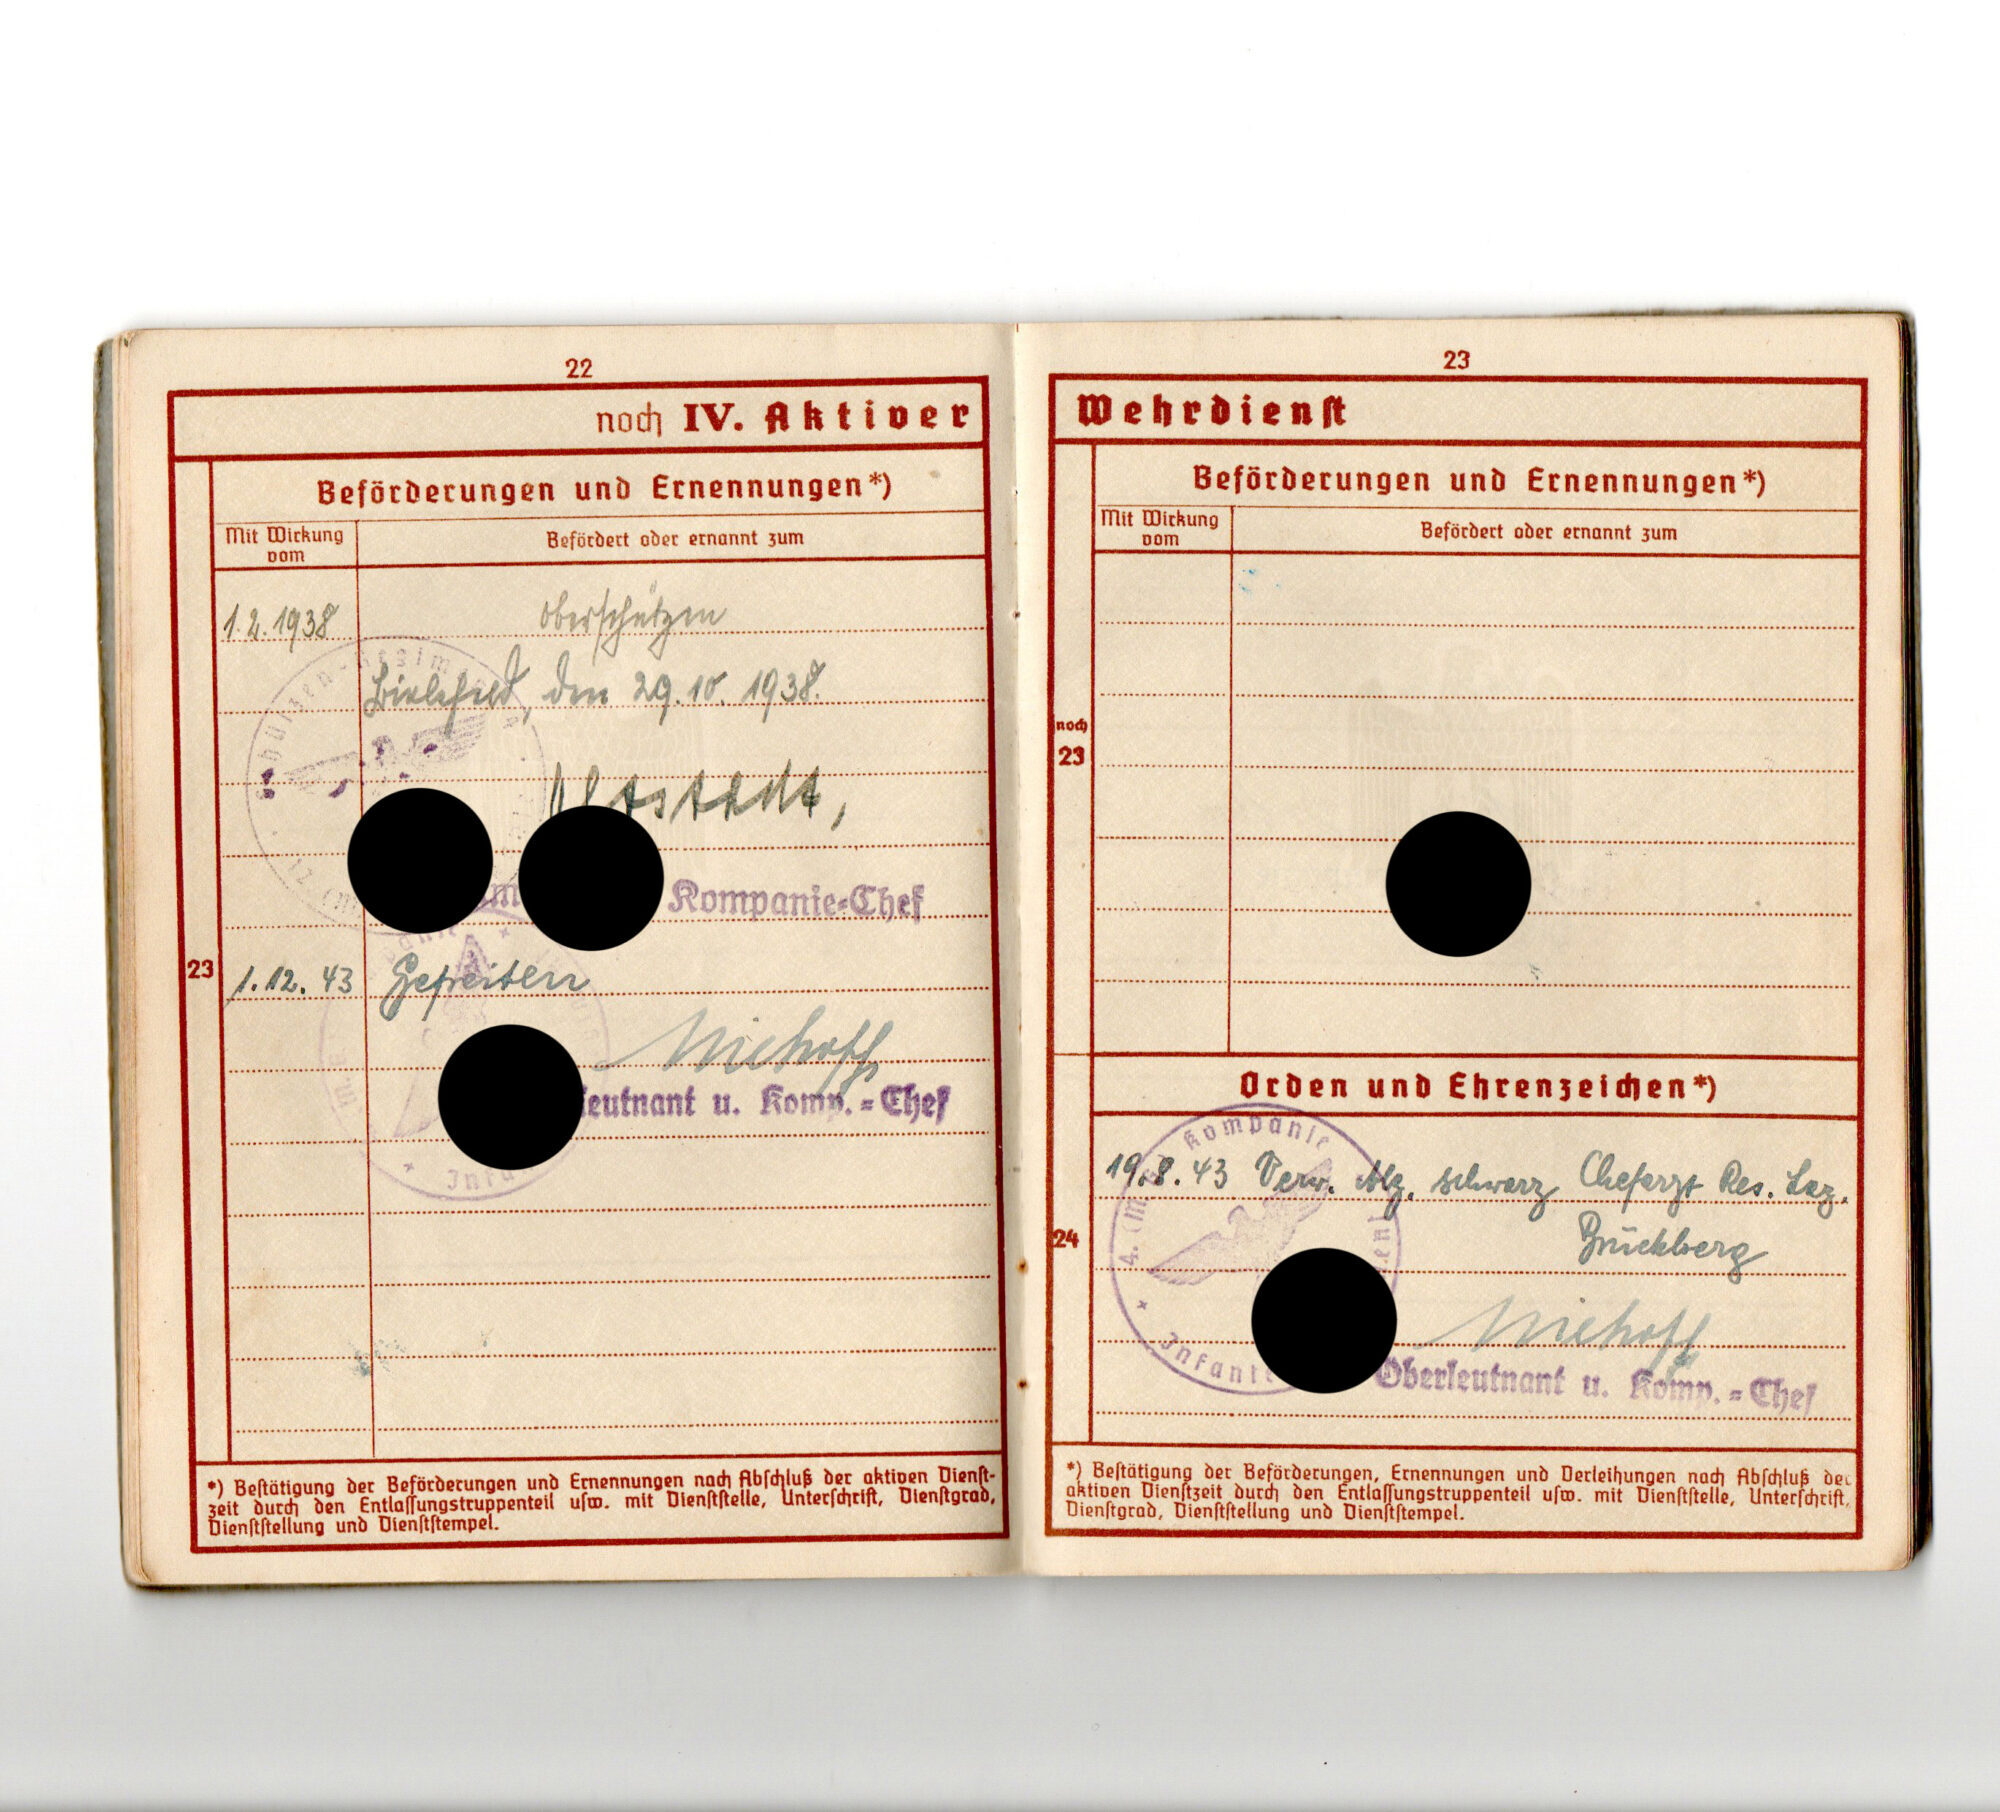 22
noch IV. Aktiver
Beförderungen und Ernennungen*)
Mit Wirkung vom
Befördert oder ernannt zum
1.2.1938 Oberschützen
Bielefeld, den 29.10.1938.
Kompanie-Chef
23
1.12.43 Gefreiten
Niehoff
leutnant u. Komp.=Chef
*) Bestätigung der Beförderungen und Ernennungen nach Abschluß der aktiven Dienst-
zeit durch den Entlassungstruppenteil usw. mit Dienststelle, Unterschrift, Dienstgrad,
Dienststellung und Dienststempel.
23
Wehrdienst
Beförderungen und Ernennungen*)
Mit Wirkung vom
Befördert oder ernannt zum
noch
23
Orden und Ehrenzeichen*)
4. (M Kompanie
19.8.43 Verw. Abz. schwarz Chefarzt Res. Laz.
Bruckberg
24
Niehoff
Infante
Oberleutnant u. Komp.=Chef
*) Bestätigung der Beförderungen, Ernennungen und Verleihungen nach Abschluß der
aktiven Dienstzeit durch den Entlassungstruppenteil usw. mit Dienststelle, Unterschrift,
Dienstgrad, Dienststellung und Dienststempel.